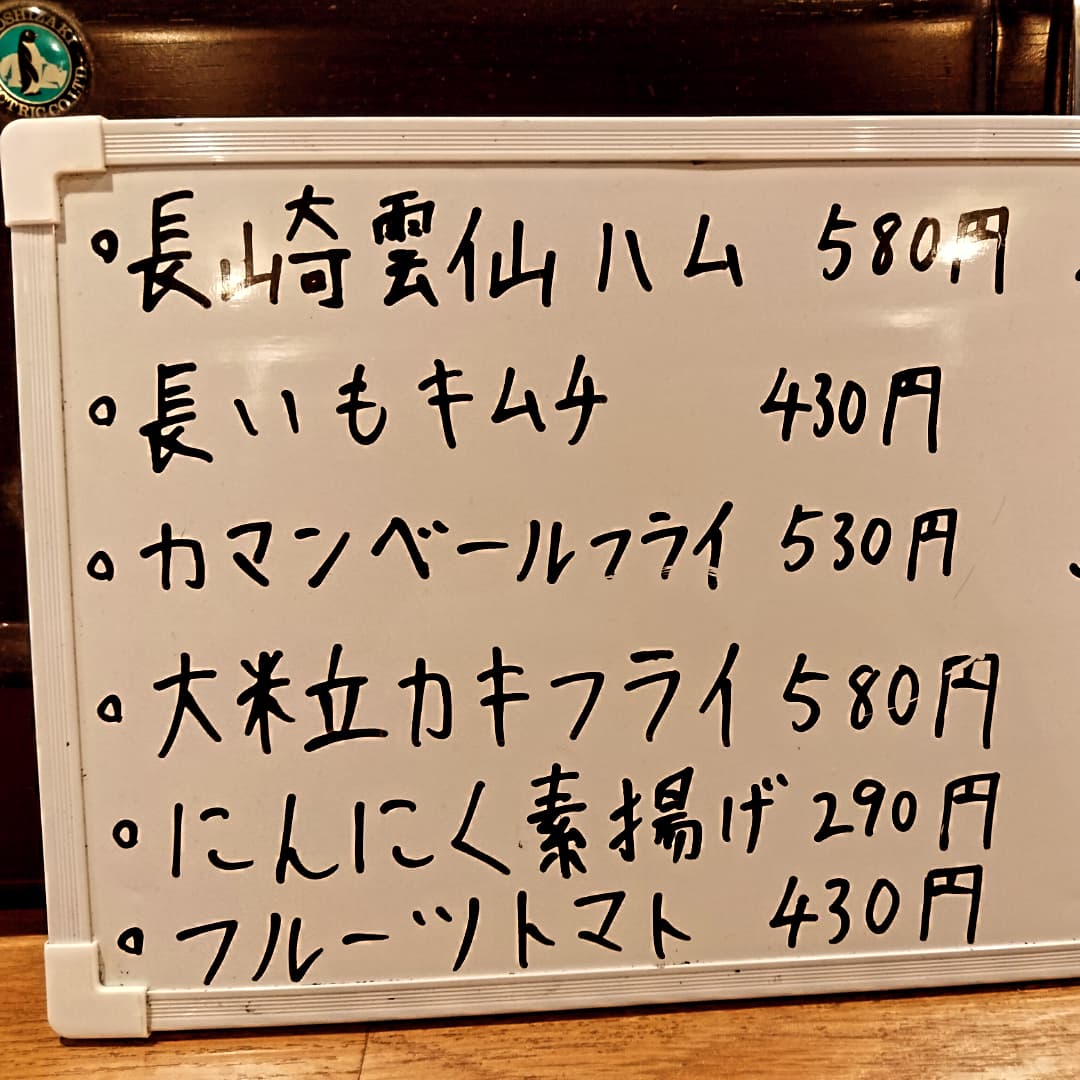 OSHIZAKI
CTRIC CO.LTD.
。長崎雲仙ハム 580円
。長いもキムチ 430円
。カマンベールフライ 530円
。大粒カキフライ 580円
。にんにく素揚げ 290円
。フルーツトマト 430円